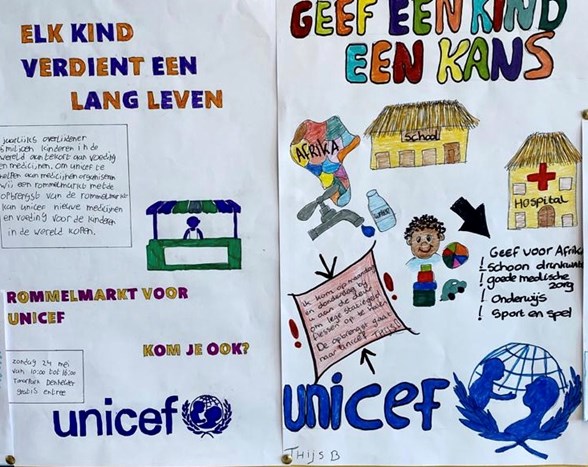 ELK KIND
VERDIENT EEN
LANG LEVEN
jaarlijks overlijden er
5 miljoen kinderen in de
wereld aan tekort aan voeding
en medicijnen. Om unicef te
helpen aan medicijnen organiseren
wij een rommelmarkt met de
opbrengst van de rommelmarkt
kan unicef nieuwe medicijnen
en voeding voor de kinderen
in de wereld kopen.
ROMMELMARKT VOOR
UNICEF
KOM JE OOK?
zondag 24 mei
van 10:00 tot 16:00
gratis entree
unicef
GEEF EEN KIND
EEN KANS
AFRIKA
School
Hospital
Ik kom op maandag
en donderdag bij
u aan de deur
om lege statiegeld
flessen op te halen
De opbrengst gaat
naar Unicef THIJS
Geef voor Afrika
! Schoon drinkwater
! goede medische
zorg
! Onderwijs
! Sport en spel
unicef
THIJS B